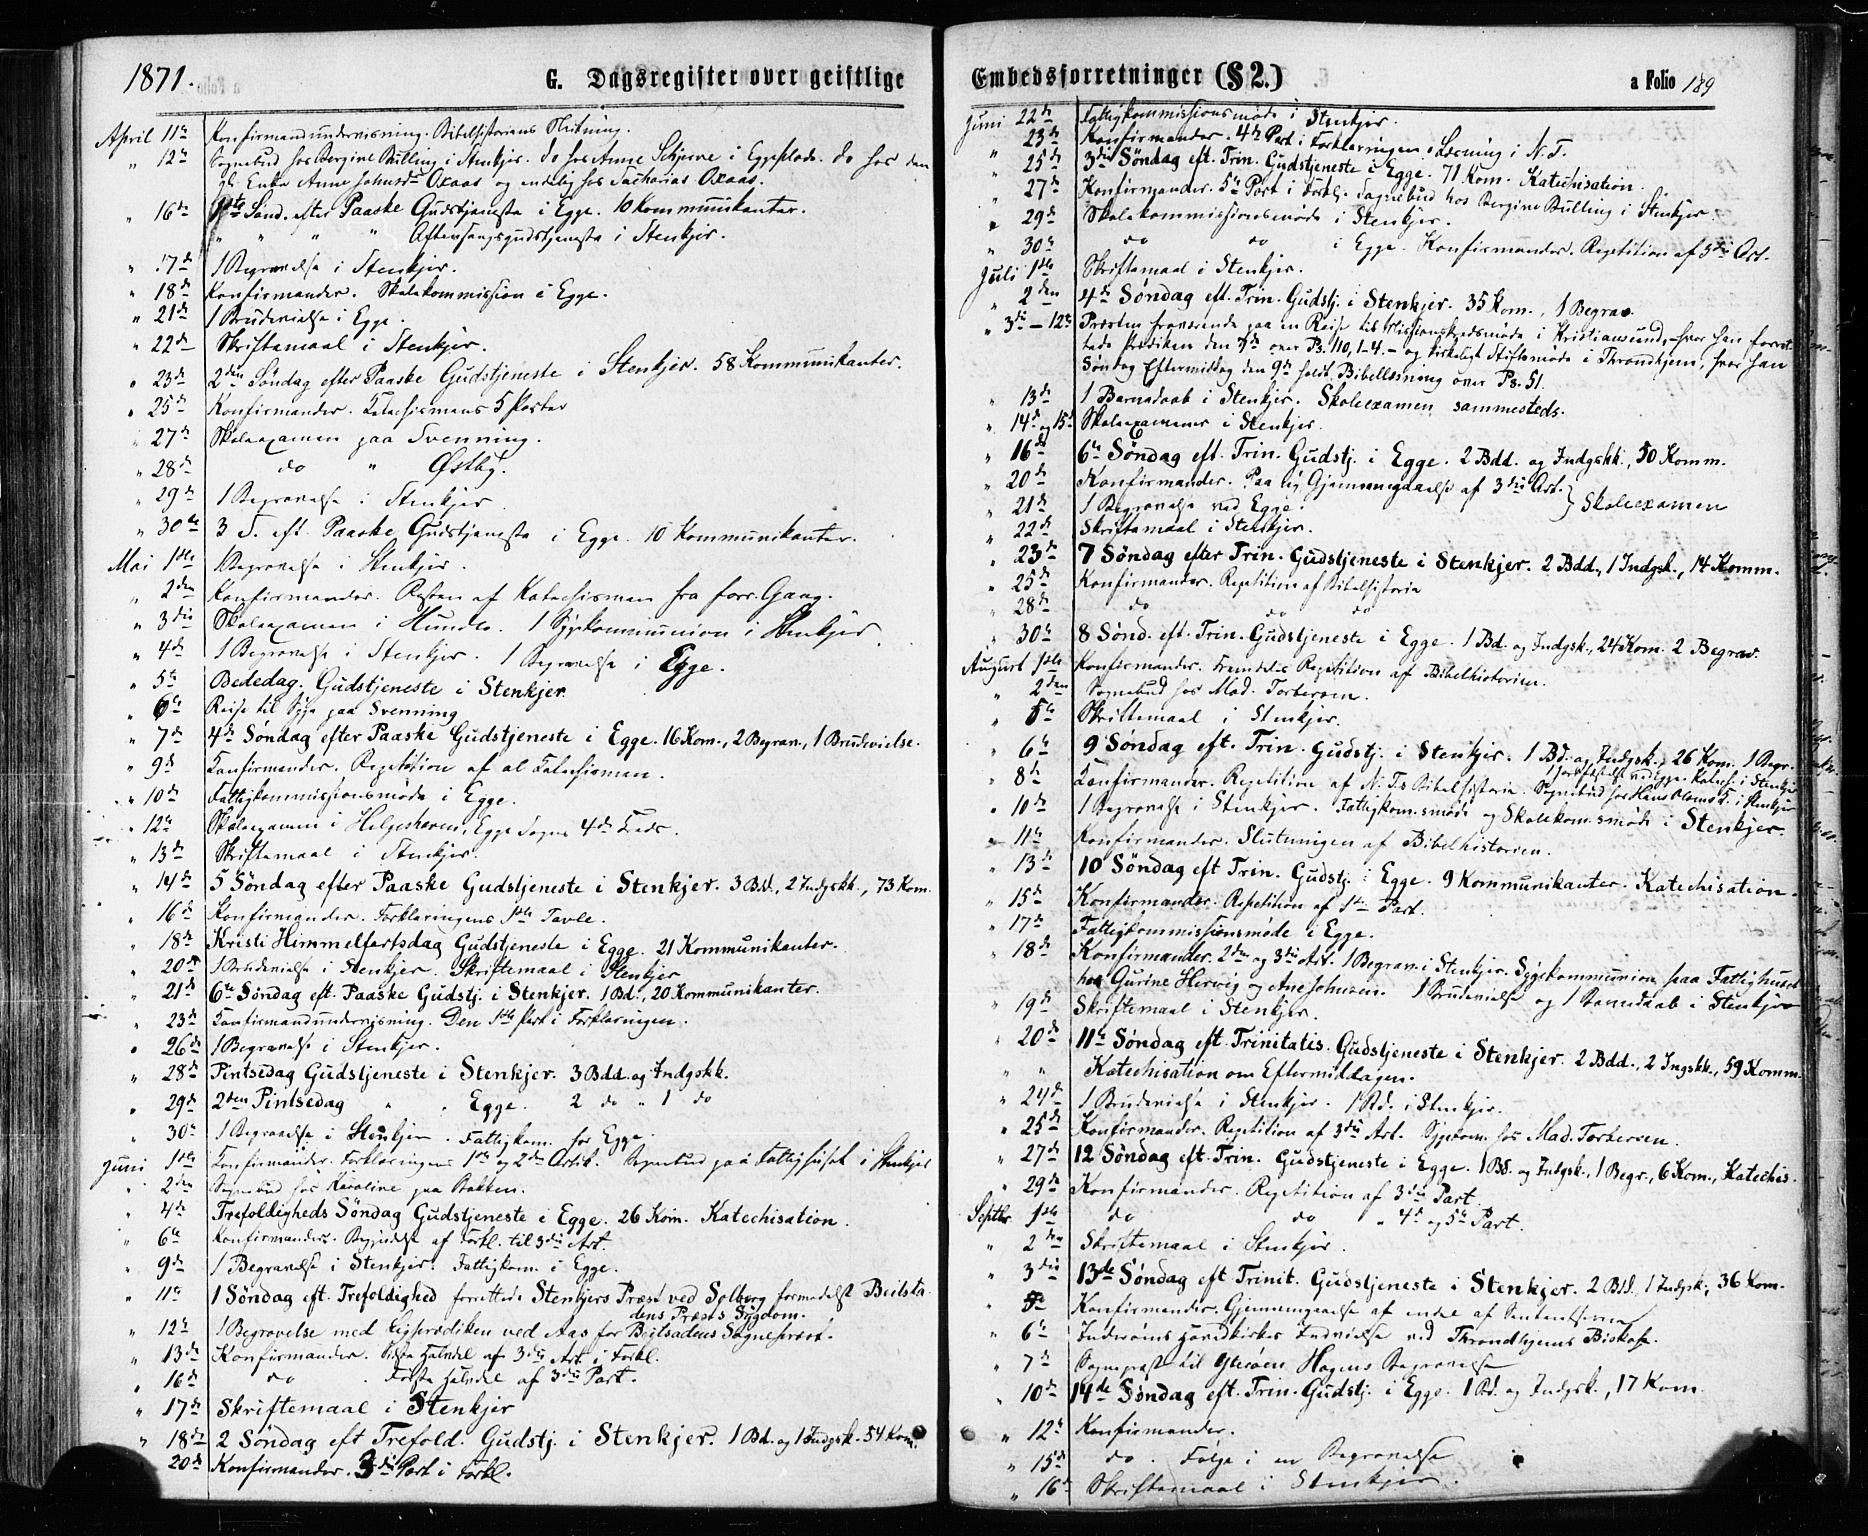 1871.
G. Dagsregister over geistlige
April 11te Konfirmandundervisning. Bibelhistoriens Slutning.
" 12te Sognebud hos Bergine Bulling i Stenkjer. do hos Anne Schjerve i Eggeplads. do hos den
gl. Enke Anne Johnsdr Oxaas og endelig hos Zacharias Oxaas.
" 16de 1ste Sønd. efter Paaske Gudstjeneste i Egge. 10 Kommunikanter.
" " " " Aftensangsgudstjeneste i Stenkjer.
" 17de 1 Begravelse i Stenkjer.
" 18de Konfirmander. Skolekommission i Egge.
" 21de 1 Brudevielse i Egge.
" 22de Skriftemaal i Stenkjer.
" 23de 2den Søndag efter Paaske Gudstjeneste i Stenkjer. 58 Kommunikanter.
" 25de Konfirmander. Katechismens 5 Parter
" 27de Skoleexamen paa Svenning.
" 28de do " Østby.
" 29de 1 Begravelse i Stenkjer
" 30te 3 S. eft. Paaske Gudstjeneste i Egge. 10 Kommunikanter.
Mai 1ste 1 Begravelse i Stenkjer.
" 2den Konfirmander. Resten af Katechismen fra forr. Gang.
" 3die Skoleexamen i Hundlo. 1 Sygekommunion i Stenkjer.
" 4de 1 Begravelse i Stenkjer. 1 Begravelse i Egge.
" 5te Bededag. Gudstjeneste i Stenkjer.
" 6te Reise til Syge paa Svenning
" 7de 4de Søndag efter Paaske Gudstjeneste i Egge. 16 Kom., 2 Begrav., 1 Brudevielse.
" 9de Konfirmander. Repetition af al Katechismen.
" 10de Fattigkommissionsmøde i Egge.
" 12te Skoleexamen i Helgeshaven, Egge Sogns 4de Kreds.
" 13de Skriftemaal i Stenkjer.
" 14de 5 Søndag efter Paaske Gudstjeneste i Stenkjer. 3 Bdd., 2 Indgskk., 73 Kom.
" 16de Konfirmander. Forklaringens 1ste Tavle.
" 18de Kristi Himmelfartsdag Gudstjeneste i Egge. 21 Kommunikanter.
" 20de 1 Brudevielse i Stenkjer. Skriftemaal i Stenkjer
" 21de 6te Søndag eft. Paaske Gudstj. i Stenkjer. 1 Bd., 20 Kommunikanter.
" 23de Konfirmandundervisning. Den 1ste Part i Forklaringen.
" 26de 1 Begravelse i Stenkjer.
" 28de Pintsedag Gudstjeneste i Stenkjer. 3 Bdd. og Indgskk.
" 29de 2den Pintsedag " " Egge. 2 do " 1 do
" 30te 1 Begravelse i Stenkjer. Fattigkom. for Egge.
Juni 1ste Konfirmander. Forklaringens 1ste og 2den Artik. Sognebud paa Fattighuset i Stenkjer
" 2den Sognebud hos Karoline paa Bakken.
" 4de Trefoldigheds Søndag Gudstjeneste i Egge. 26 Kom. Katechisation.
" 6te Konfirmander. Begyndelse af Forkl. til 3die Art.
" 9de 1 Begravelse i Stenkjer. Fattigkom. i Egge.
" 11te 1 Søndag eft. Trefoldighed forrettede Stenkjers Præst ved Solberg formedelst Beitsta-
dens Præsts Sygdom.
" 12te 1 Begravelse med Ligprædiken ved Aas for Beitsadens Sognepræst.
" 13de Konfirmander. Sidste Halvdel af 3die Art. i Forkl.
" 16de do. Første Halvdel af 3die Part.
" 17de Skriftemaal i Stenkjer
" 18de 2 Søndag eft Trefold. Gudstj. i Stenkjer. 1 Bd. og 1 Indgsk. 54 Kom.
20de Konfirmander. 3die Part i Forkl.
Embedsforretninger (§ 2.)
a Folio 189
Juni 22de Fattigkommissionsmøde i Stenkjer.
" 23de Konfirmander. 4de Part i Forklaringen. Læsning i N. T.
" 25de 3die Søndag eft. Trin. Gudstjeneste i Egge. 71 Kom. Katechisation.
" 27de Konfirmander. 5te Part i Forkl. Sognebud hos Bergine Bulling i Stenkjer.
" 29de Skolekommissionsmøde i Stenkjer.
" 30te do do i Egge. Konfirmander. Repetition af 3die Art.
Juli 1ste Skriftemaal i Stenkjer.
" 2den 4de Søndag eft. Trin. Gudstj. i Stenkjer. 35 Kom., 1 Begrav.
" 3die – 12te Præsten fraværende paa en Reise til Missionskredsmøde i Kristianssund, – hvor han forret-
tede Prædiken den 7de over Ps. 110, 1–4. – og kirkeligt Stiftsmøde i Throndhjem, hvor han
Søndag Eftermiddag den 9de holdt Bibellæsning over Ps. 51.
" 13de 1 Barnedaab i Stenkjer. Skoleexamen sammesteds.
" 14de og 15de Skoleexamener i Stenkjer.
" 16de 6te Søndag eft. Trin. Gudstj. i Egge. 2 Bdd. og Indgskk., 30 Komm.
" 20de Konfirmander. Paa ny Gjennemgaaelse af 3die Art. } Skoleexamen
" 21de 1 Begravelse ved Egge.
" 22de Skriftemaal i Stenkjer.
" 23de 7 Søndag efter Trin. Gudstjeneste i Stenkjer. 2 Bdd., 1 Indgsk., 14 Komm.
" 25de Konfirmander. Repetition af Bibelhistorie
" 28de do do do
" 30te 8 Sønd. eft. Trin. Gudstjeneste i Egge. 1 Bd. og Indgsk., 24 Kom. 2 Begrav.
August 1ste Konfirmander. Fremdeles Repetition af Bibelhistorien.
" 2den Sognebud hos Mad. Torbersen.
" 5te Skriftemaal i Stenkjer.
" 6te 9 Søndag eft. Trin. Gudstj. i Stenkjer. 1 Bd. og Indgsk., 26 Kom. 1 Begr.
1 Jordfæstelse ved Egge. Katech. i Stenkjer
" 8de Konfirmander. Repetition af N. T.s Bibelhistorie. Sognebud hos Hans Olsens K. i Stenkjer
" 10de 1 Begravelse i Stenkjer. Fattigkom.smøde og Skolekom.smøde i Stenkjer.
" 11te Konfirmander. Slutningen af Bibelhistorien.
" 13de 10 Søndag eft Trin. Gudstj. i Egge. 9 Kommunikanter. Katechisation.
" 15de Konfirmander. Repetition af 1ste Part.
" 17de Fattigkommissionsmøde i Egge.
" 18de Konfirmander. 2den og 3die Art. 1 Begrav. i Stenkjer. Sygekommunion paa Fattighuset
hos Gurine Hervig og Ane Johnsen. 1 Brudevielse og 1 Barnedaab i Stenkjer
" 19de Skriftemaal i Stenkjer.
" 20de 11te Søndag eft. Trinitatis. Gudstjeneste i Stenkjer. 2 Bdd., 2 Ingskk., 59 Komm.
" " Katechisation om Eftermiddagen.
" 24de 1 Brudevielse i Stenkjer. 1 Bd. i Stenkjer.
" 25de Konfirmander. Repetition af 3die Art. Sygekom. hos Mad. Torbersen.
" 27de 12 Søndag eft. Trin. Gudstjeneste i Egge. 1 Bd. og Indgsk., 1 Begr., 6 Kom., Katechis.
" 29de Konfirmander. Repetition af 3die Part
Septbr. 1ste do do " 4de og 5te Part.
" 2den Skriftemaal i Stenkjer.
" 3die 13de Søndag eft Trinit. Gudstjeneste i Stenkjer. 2 Bdd., 1 Indgsk., 36 Kom.
" 5te Konfirmander. Gjennemgaaelse af endel af Sentenserne
" 6te Inderøens Hovedkirkes Indvielse ved Throndhjems Biskop.
" 7de Sognepræst til Ytterøen Hagens Begravelse
" 10de 14de Søndag eft. Trin. Gudstj. i Egge. 1 Bd. og Indgsk., 17 Kom.
" 12te Konfirmander.
" 15de do. Følge i en Begravelse
" 16de Skriftemaal i Stenkjer.